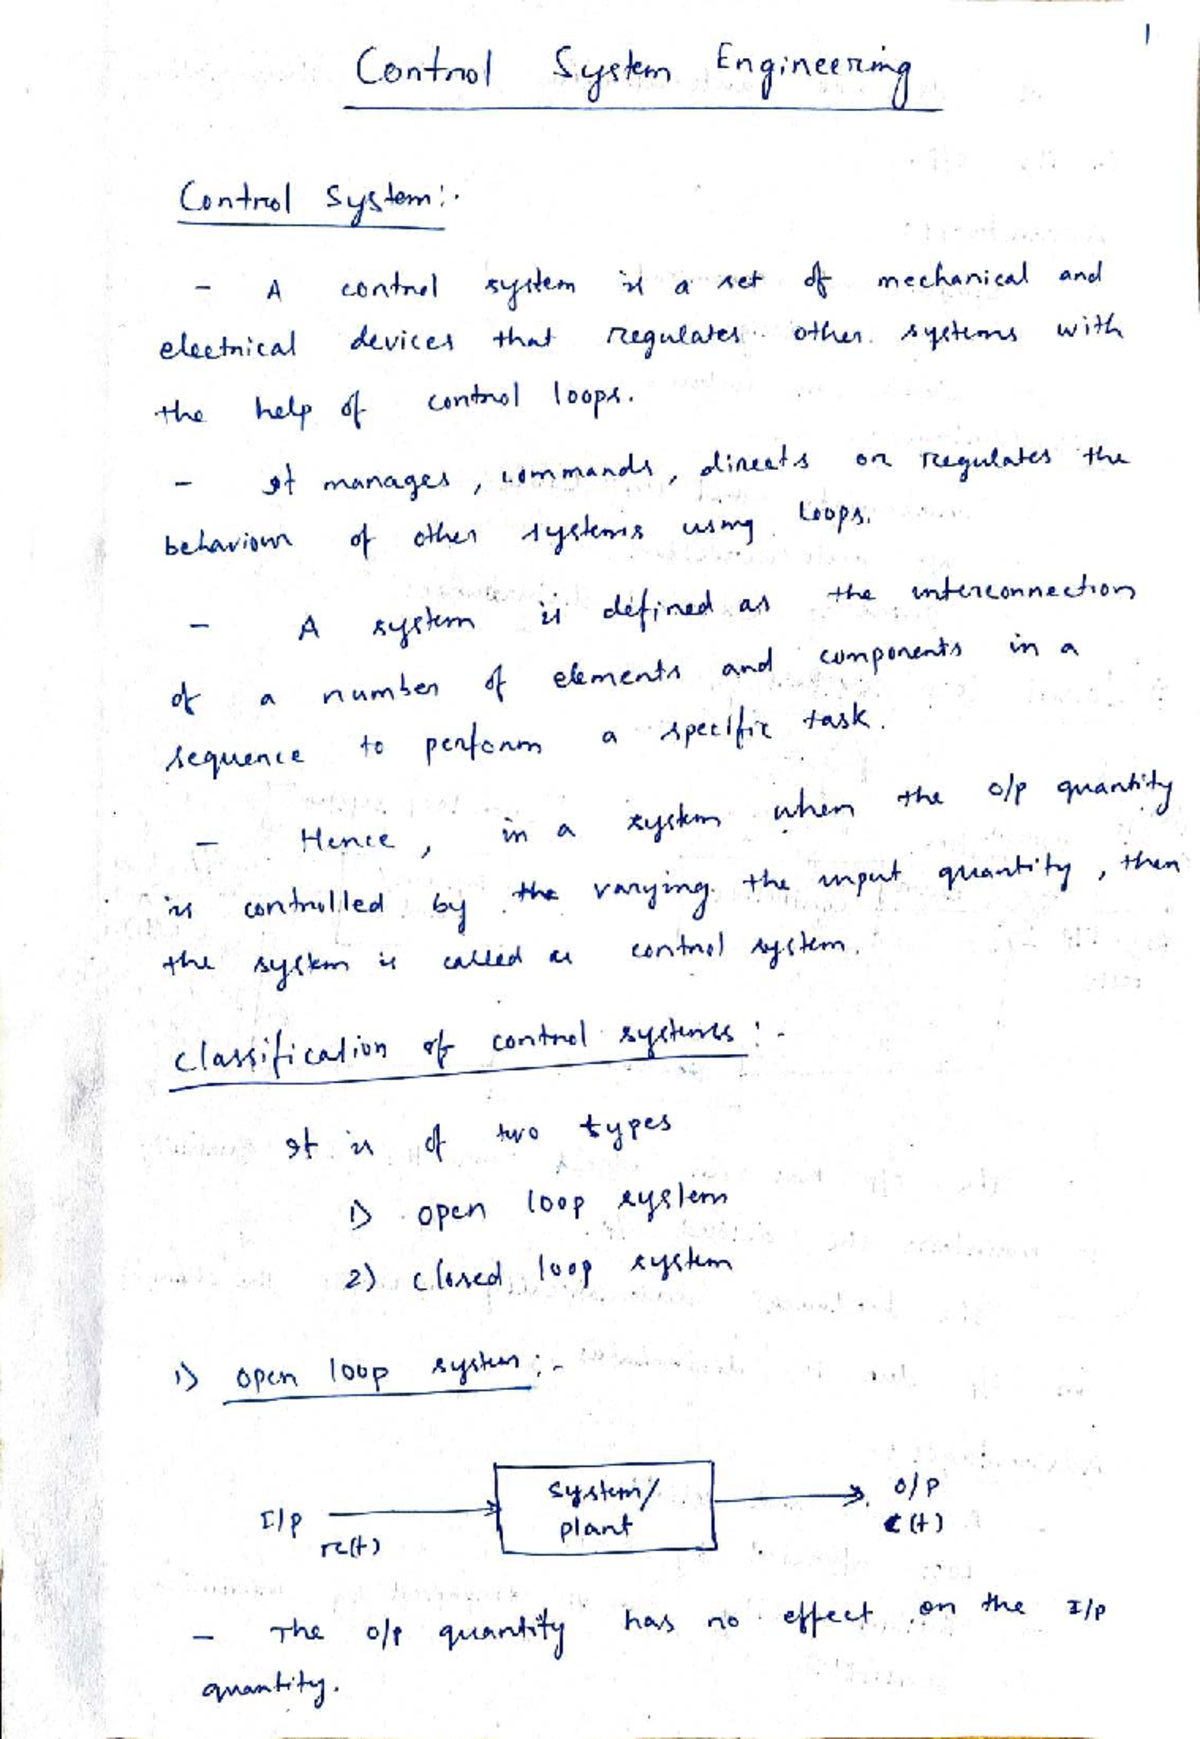 1
Control System Engineering
Control System:-
- A control system is a set of mechanical and
electrical devices that regulates other systems with
the help of control loops.
- It manages, commands, directs or regulates the
behaviour of other systems using loops.
- A system is defined as the interconnection
of a number of elements and components in a
sequence to perform a specific task.
- Hence, in a system when the o/p quantity
is controlled by the varying the input quantity, then
the system is called as control system.
Classification of control systems:-
It is of two types
1) open loop system
2) closed loop system
1) open loop system:-
I/p
r(t)
system/
plant
o/p
c(t)
- The o/p quantity has no effect on the I/p
quantity.